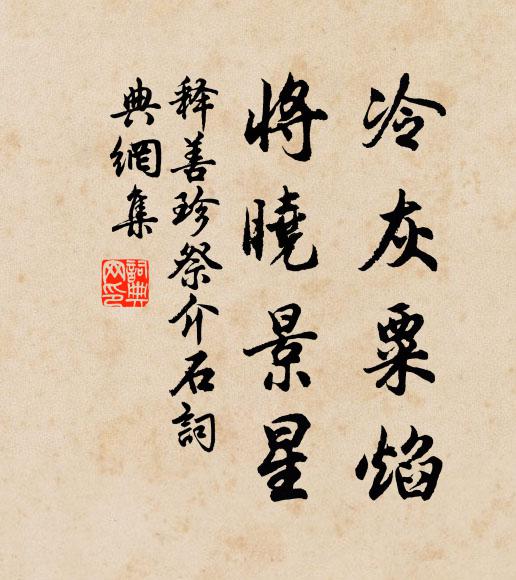 冷灰粟焰
将曉景星
释善珍祭介石詞
典網集
詞典
网印